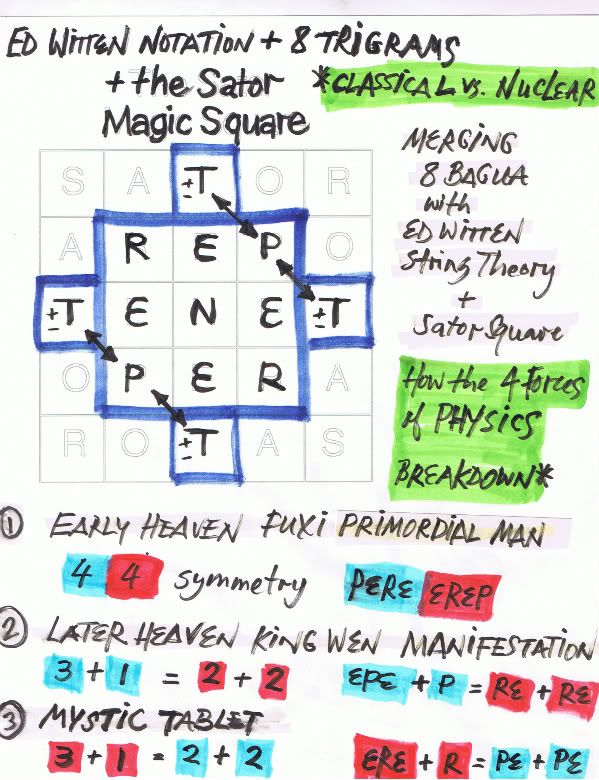 ED WITTEN NOTATION + 8 TRIGRAMS
+ the Sator
Magic Square
*CLASSICAL VS. NUCLEAR
S A ±T O R
A R E P O
±T E N E ±T
O P E R A
R O ±T A S
MERGING
8 BAGUA
with
ED WITTEN
String Theory
+
Sator Square
How the 4 Forces
of PHYSICS
BREAKDOWN*
① EARLY HEAVEN FUXI PRIMORDIAL MAN
4 4 symmetry PERE EREP
② LATER HEAVEN KING WEN MANIFESTATION
3 + 1 = 2 + 2 EPE + P = RE + RE
③ MYSTIC TABLET
3 + 1 = 2 + 2 ERE + R = PE + PE